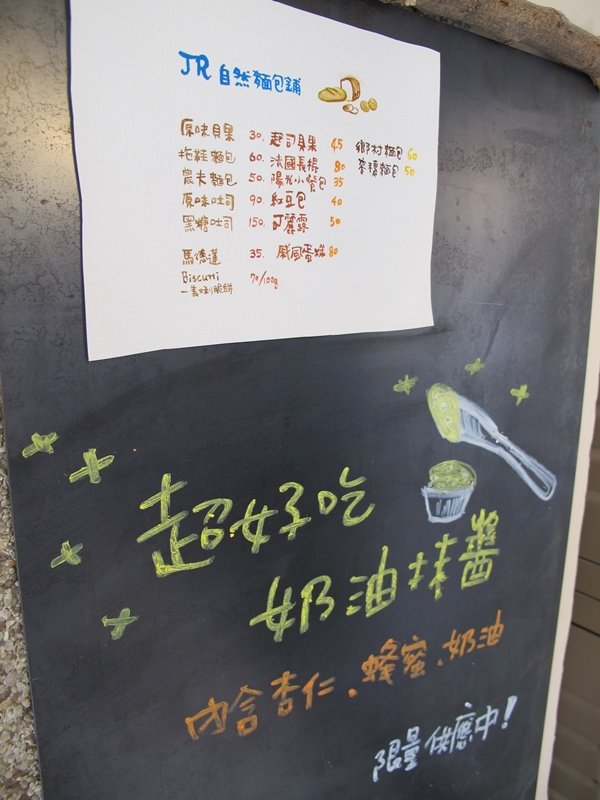 JR 自然麵包舖
原味貝果 30. 起司貝果 45 鄉村麵包 60
拖鞋麵包 60. 法國長棍 80 李穗麵包 50
農夫麵包 50. 陽光小餐包 35
原味吐司 90. 紅豆包 40
黑糖吐司 150. 可麗露 50
馬德蓮 35. 戚風蛋糕 80
Biscutti 70/100g
義大利脆餅
超好吃
奶油抹醬
內含杏仁、蜂蜜、奶油
限量供應中！